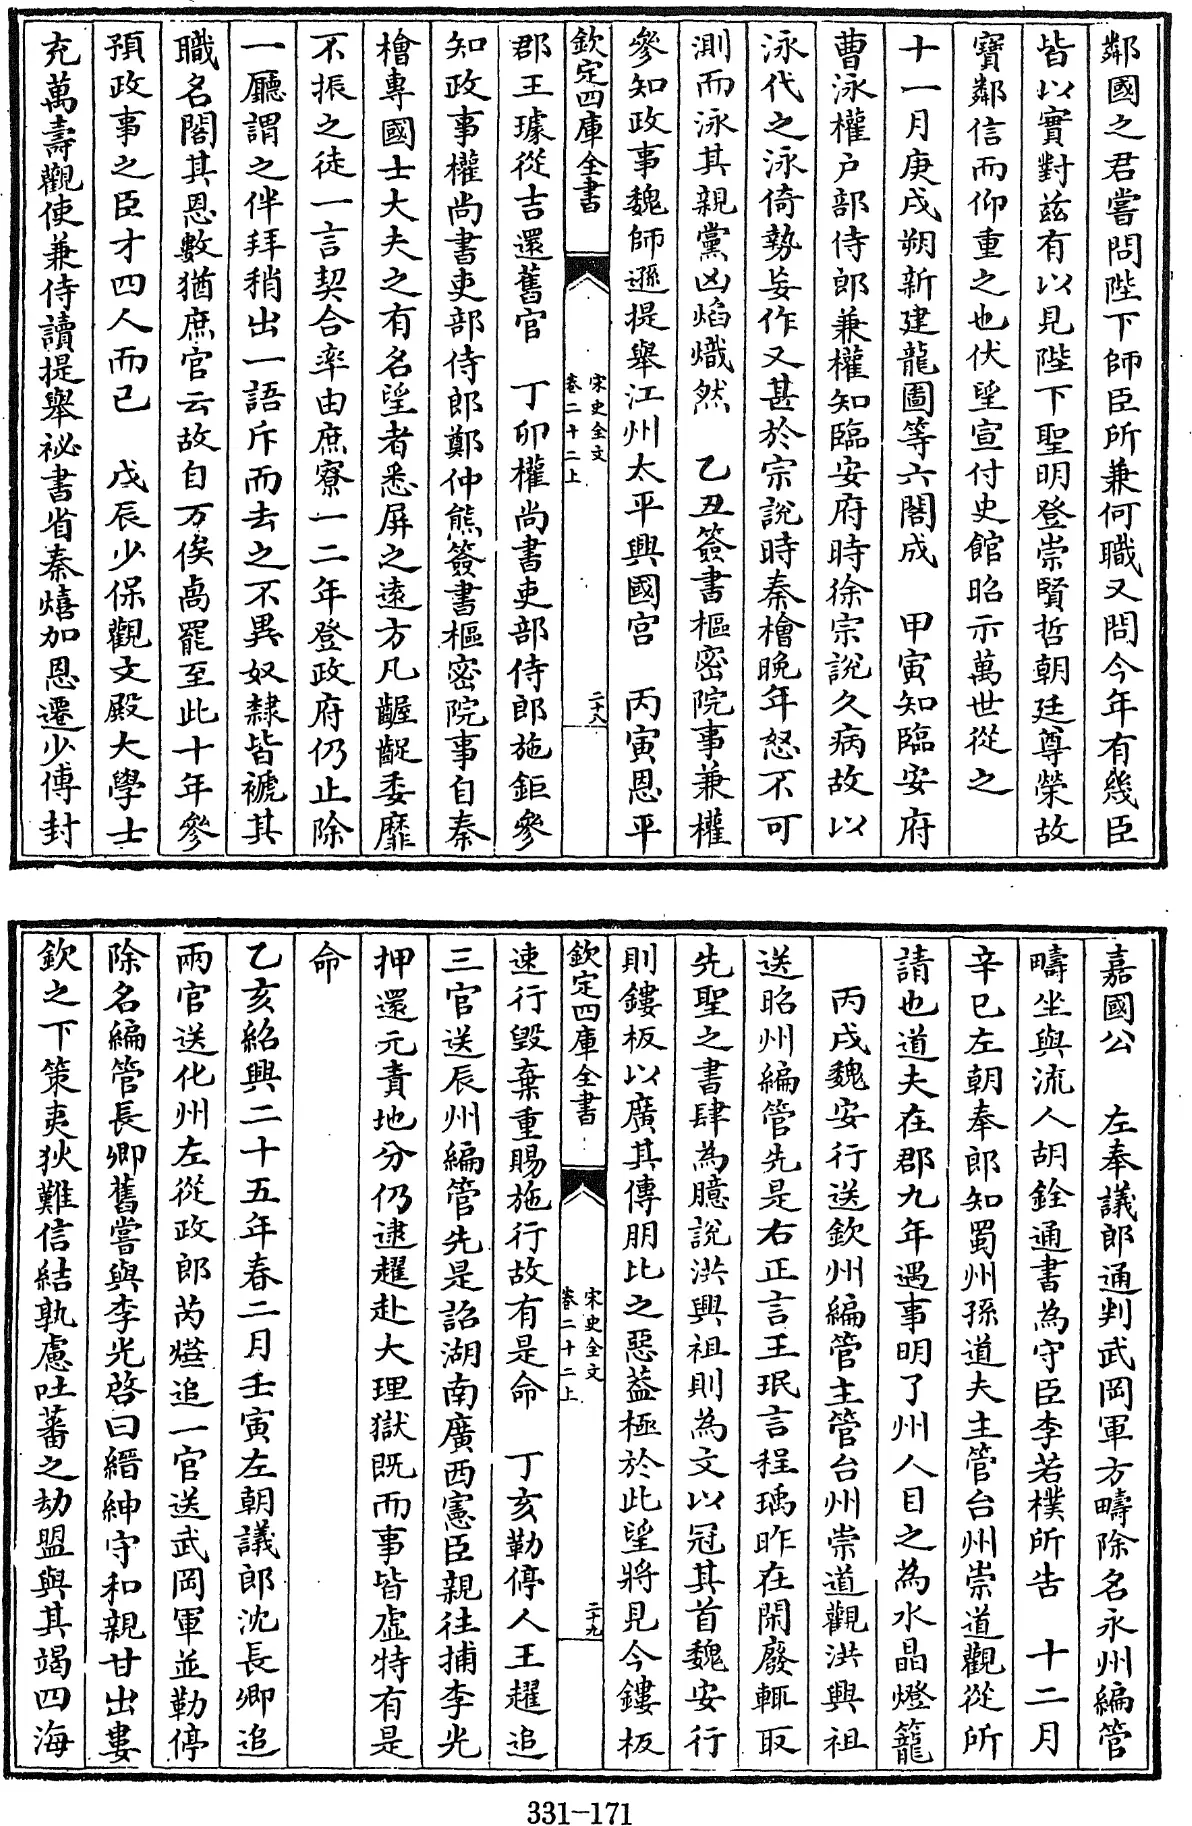 鄰國之君嘗問陛下師臣所兼何職又問今年有幾臣
皆以實對兹有以見陛下聖明登崇賢哲朝廷尊榮故
寶鄰信而仰重之也伏望宣付史館昭示萬世從之
十一月庚戌朔新建龍圖等六閣成　甲寅知臨安府
曹泳權户部侍郎兼權知臨安府時徐宗說久病故以
泳代之泳倚勢妄作又甚於宗說時秦檜晚年怒不可
測而泳其親黨凶焰熾然　乙丑簽書樞密院事兼權
參知政事魏師遜提舉江州太平興國宮　丙寅恩平
欽定四庫全書
宋史全文
卷二十二上
二十八
郡王璩從吉還舊官　丁卯權尚書吏部侍郎施鉅參
知政事權尚書吏部侍郎鄭仲熊簽書樞密院事自秦
檜專國士大夫之有名望者悉屏之遠方凡齷齪委靡
不振之徒一言契合率由庶寮一二年登政府仍止除
一廳謂之伴拜稍出一語斥而去之不異奴隸皆褫其
職名閣其恩數猶庶官云故自万俟卨罷至此十年參
預政事之臣才四人而已　戊辰少保觀文殿大學士
充萬壽觀使兼侍讀提舉祕書省秦熺加恩遷少傅封
嘉國公　左奉議郎通判武岡軍方疇除名永州編管
疇坐與流人胡銓通書為守臣李若樸所告　十二月
辛巳左朝奉郎知蜀州孫道夫主管台州崇道觀從所
請也道夫在郡九年遇事明了州人目之為水晶燈籠
丙戌魏安行送欽州編管主管台州崇道觀洪興祖
送昭州編管先是右正言王珉言程瑀昨在閑廢輒取
先聖之書肆為臆說洪興祖則為文以冠其首魏安行
則鏤板以廣其傳朋比之惡葢極於此望將見今鏤板
欽定四庫全書
宋史全文
卷二十二上
二十九
速行毀棄重賜施行故有是命　丁亥勒停人王趯追
三官送辰州編管先是詔湖南廣西憲臣親往捕李光
押還元責地分仍逮趯赴大理獄既而事皆虛特有是
命
乙亥紹興二十五年春二月壬寅左朝議郎沈長卿追
兩官送化州左從政郎芮燁追一官送武岡軍並勒停
除名編管長卿舊嘗與李光啓曰縉紳守和親甘出婁
欽之下策夷狄難信結孰慮吐蕃之劫盟與其竭四海
331-171